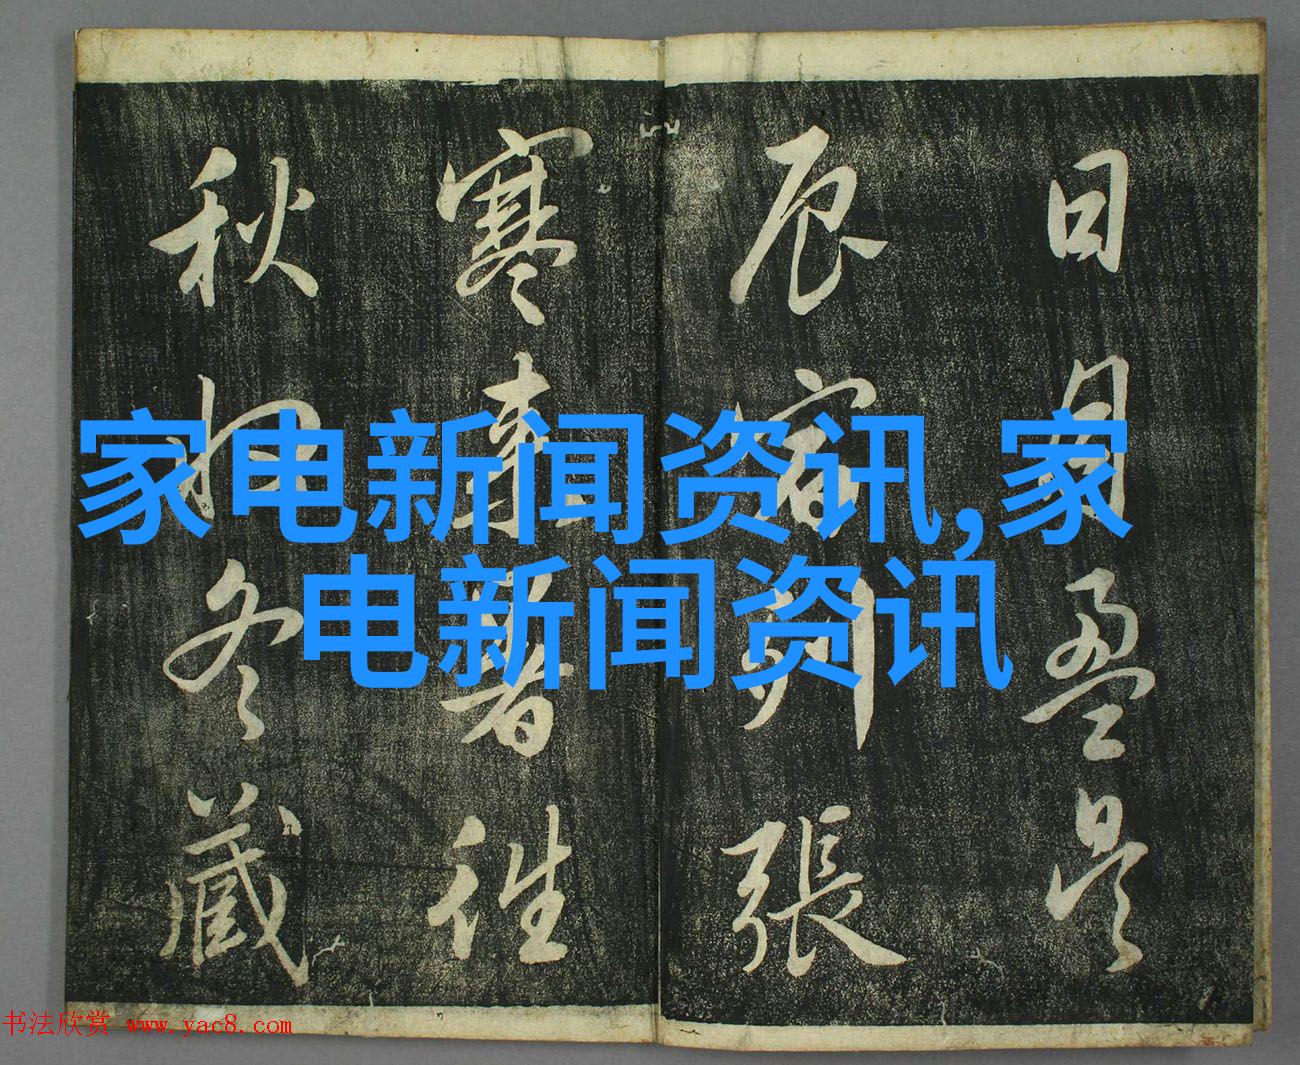 日月盈昃
辰宿列張
寒來暑往
秋收冬藏
家电新闻资讯,家
电新闻资讯
书法欣赏 www.yac8.com